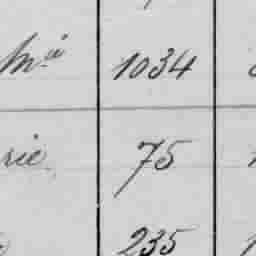 Mª 1034
rie 75
235